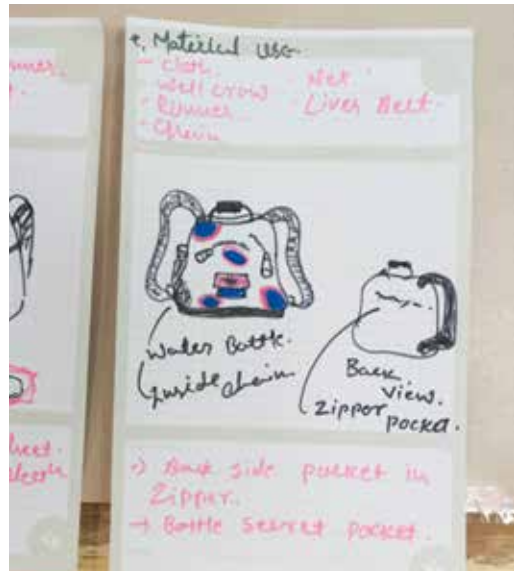 Material Use
- Cloth. · Net
well crow · Liver Belt.
· Runner
· Chain
Water Bottle.
Inside chain
Back
view.
Zipper
pocket.
→ Back side pocket in
Zipper.
→ Bottle secret pocket.